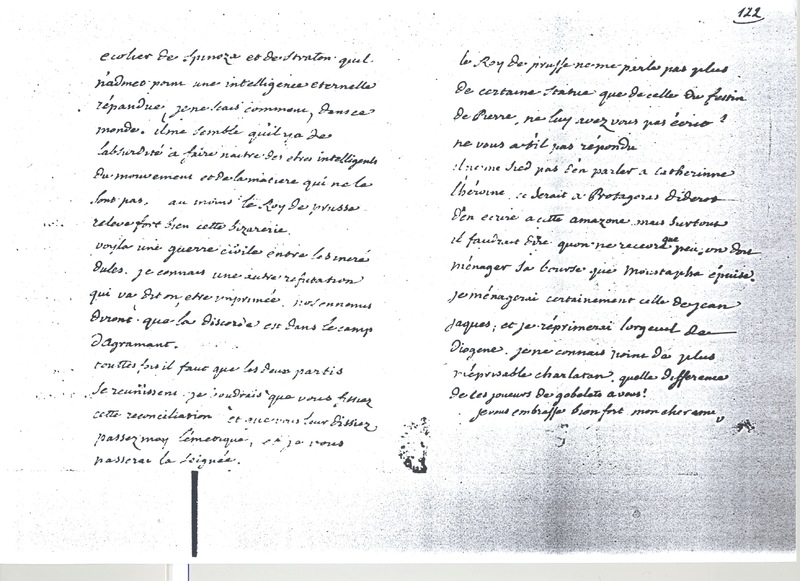 122
ecolier de Spinoza et de Straton quil
n'admet point une intelligence eternelle
répandue, je ne scais comment, dans ce
monde. il me semble qu'il y a de
l'absurdité a faire naitre des etres intelligents
du mouvement et de la matiere qui ne le
sont pas. au moins le Roy de prusse
releve fort bien cette bizarerie.
voyla une guerre civile entre les incré
dules. je connais une autre refutation
qui va dit on etre imprimée. nos ennemis
diront que la discorde est dans le camp
d'Agramant.
touttes fois il faut que les deux partis
se reunissent. je voudrais que vous fissiez
cette reconciliation et que vous leur dissiez
passez moy l'emetique, et je vous
passerai la seignée.
le Roy de prusse ne me parle pas plus
de certaine statue que de celle du festin
de Pierre. ne luy avez vous pas écrit?
ne vous a t'il pas répondu
il ne me sied pas d'en parler a Catherinne
l'héroine. ce serait a Protagoras Diderot
d'en ecrire a cette amazone mais surtout
il faudrait dire quon ne recevra que peu, on doit
ménager sa bourse que Moustapha épuise.
je ménagerai certainement celle de jean
jaques; et je réprimerai lorgeuil de
Diogene. je ne connais point de plus
méprisable charlatan. quelle difference
de ces joueurs de gobelets a vous!
je vous embrasse bien fort mon cher ami,